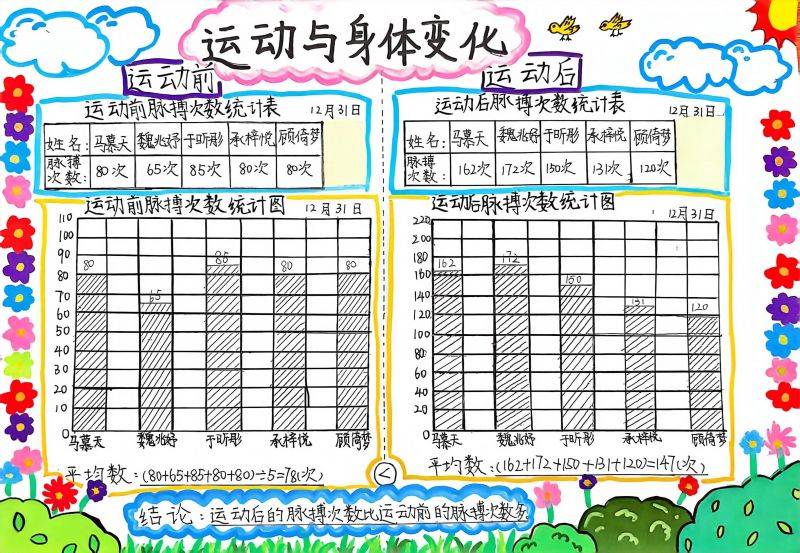 运动与身体变化
运动前
运动前脉搏次数统计表 12月31日
姓名: 马慕天 魏兆妤 于昕彤 承梓悦 顾倚梦
脉搏次数: 80次 65次 85次 80次 80次
运动前脉搏次数统计图 12月31日
110
100
90
80
70
60
50
40
30
20
10
0
80 65 85 80 80
马慕天 魏兆妤 于昕彤 承梓悦 顾倚梦
平均数:(80+65+85+80+80)÷5=78(次)
运动后
运动后脉搏次数统计表 12月31日
姓名: 马慕天 魏兆妤 于昕彤 承梓悦 顾倚梦
脉搏次数: 162次 172次 150次 131次 120次
运动后脉搏次数统计图 12月31日
220
200
180
160
140
120
100
80
60
40
20
0
162 172 150 131 120
马慕天 魏兆妤 于昕彤 承梓悦 顾倚梦
平均数:(162+172+150+131+120)=147(次)
<
结论:运动后的脉搏次数比运动前的脉搏次数多